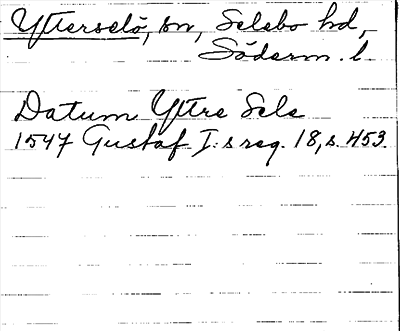 Ytterselö, sn, Selebo hd,
Söderm. l.
Datum Yttre Sele
1547 Gustaf I:s reg. 18, s. 453.